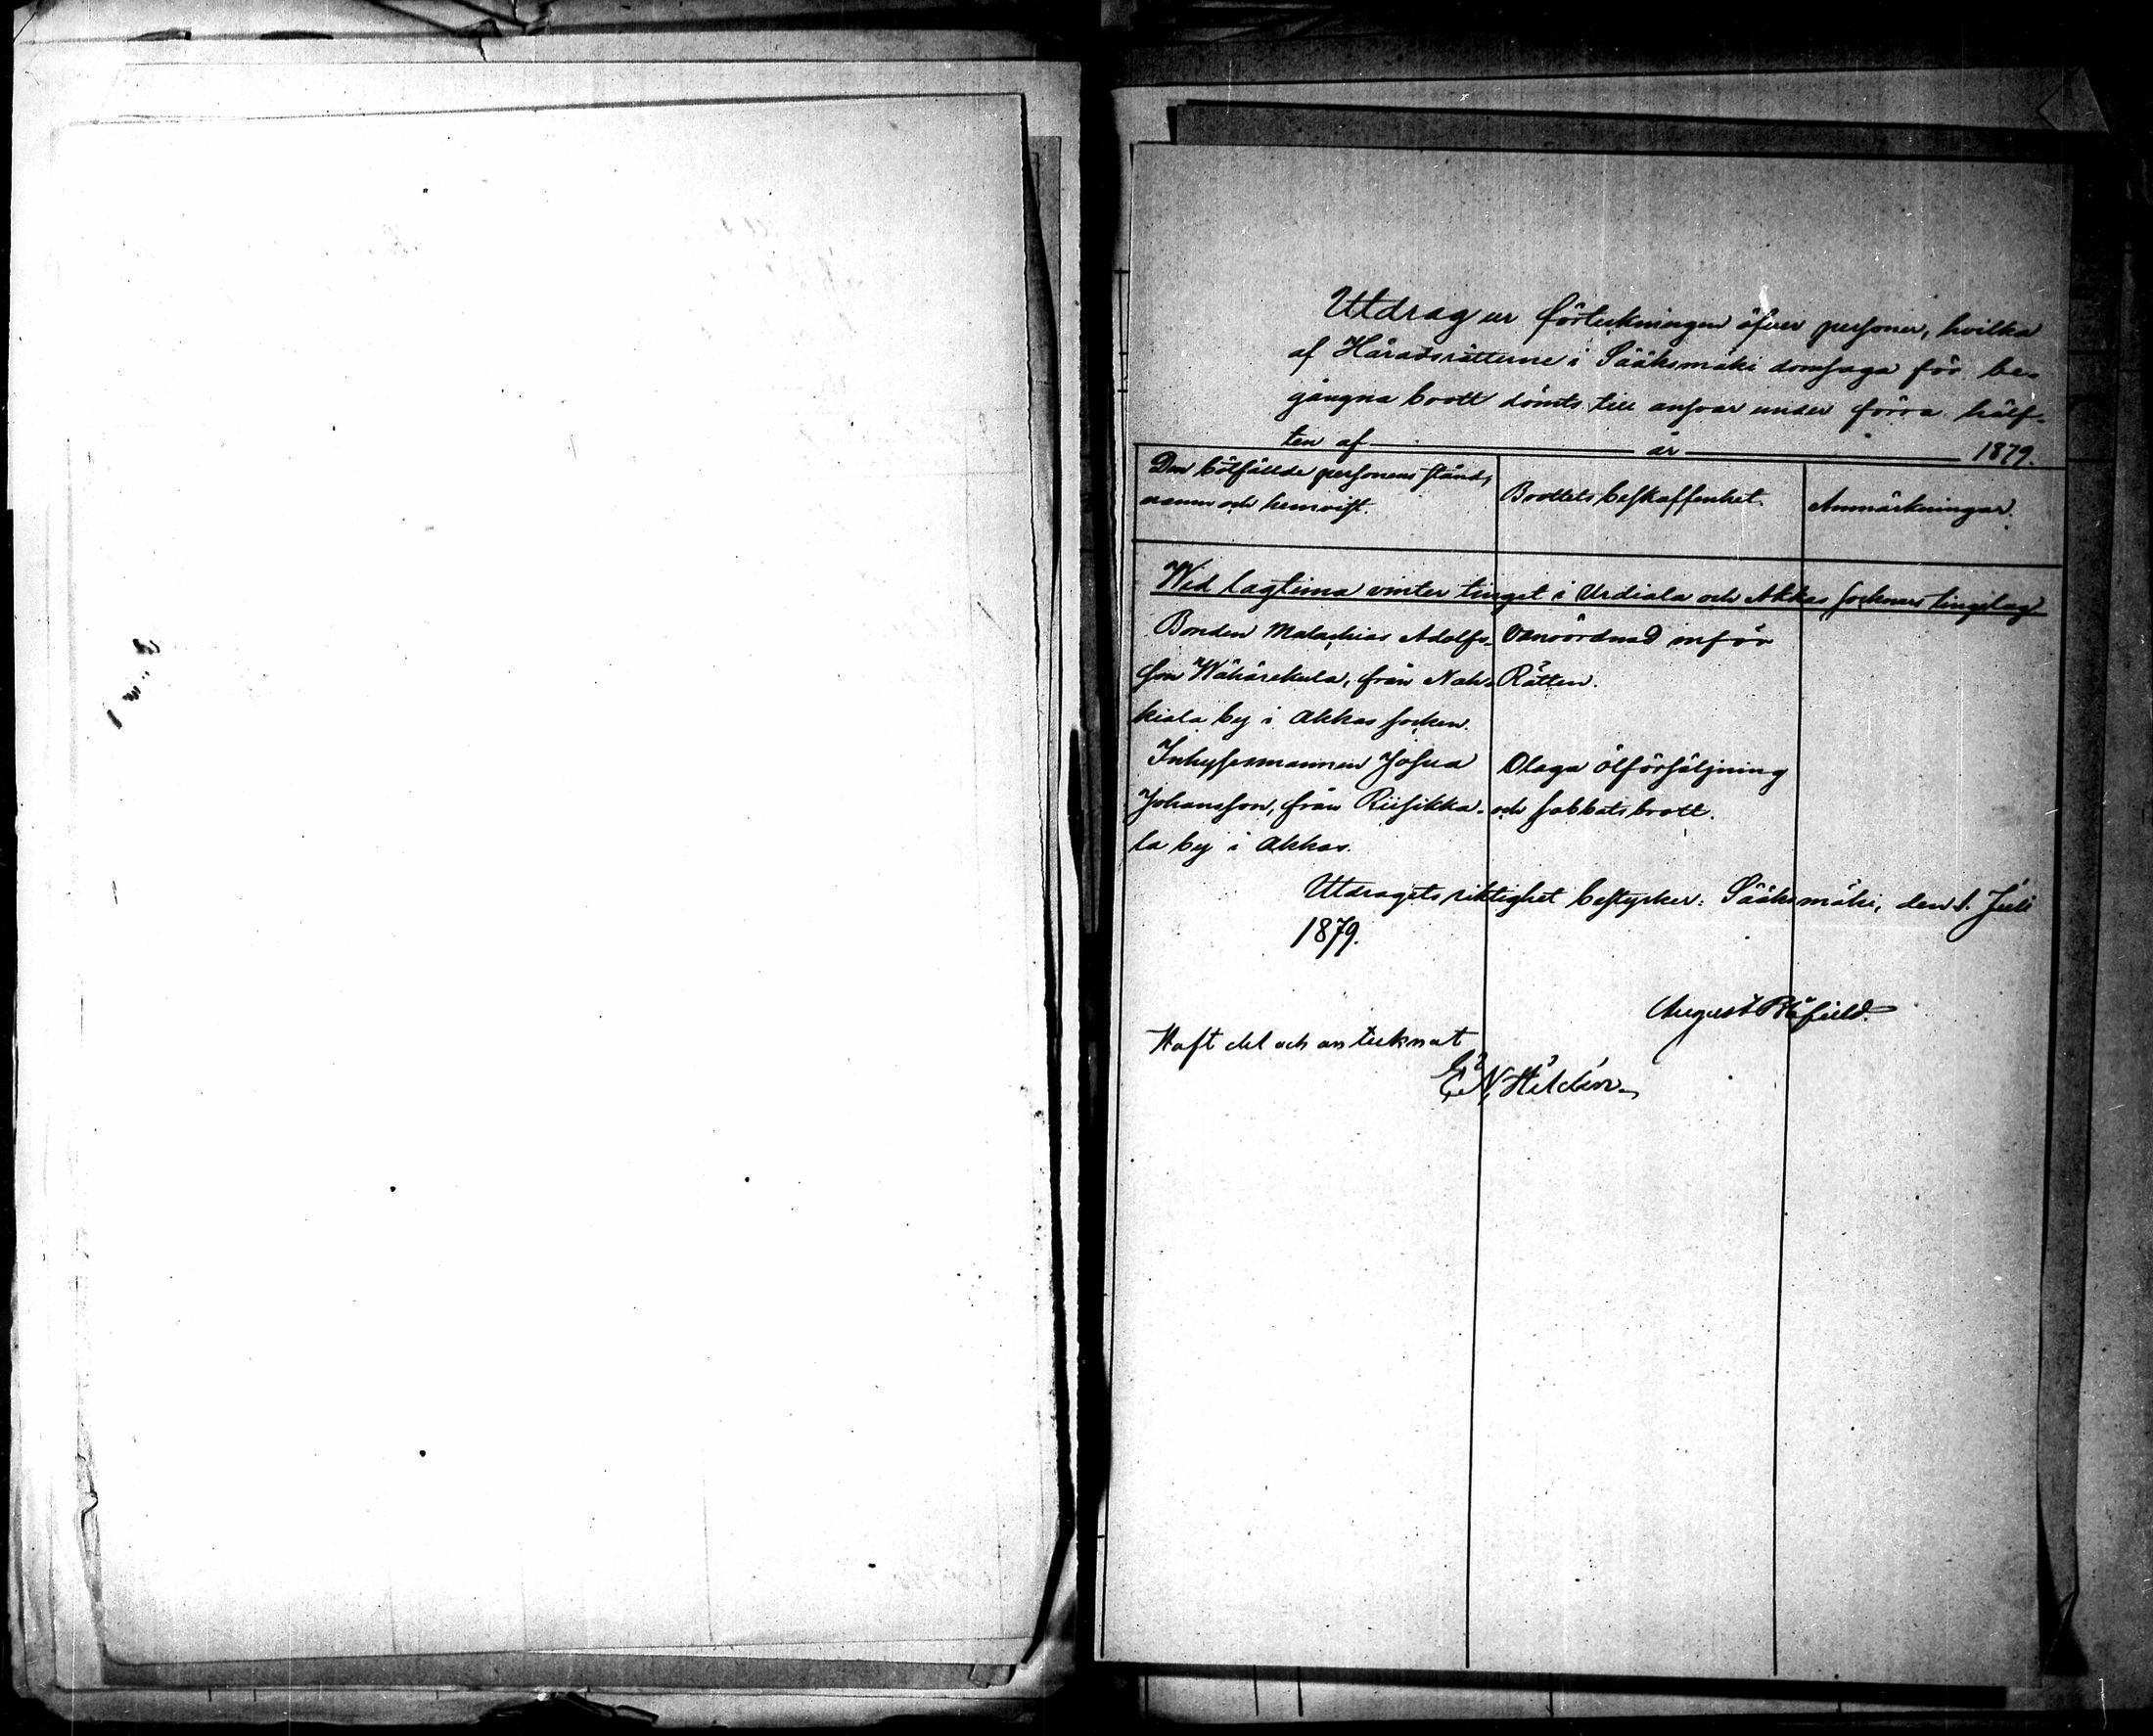 Utdrag ur förteckningen öfver personer, hvilka
af Häradsrätterne i Sääksmäki domsaga för be-
gångna brott dömts till ansvar under förra hälf-
ten af år 1879.
Den bötfällde personens stånd,
namn och hemvist.
Brottets beskaffenhet.
Anmärkningar.
Wid lagtima vinter tinget i Urdiala och Akkas socknars tingslag
Bonden Malachias Adolfs-
son Wähärekula, från Nah-
kiala by i Akkas socken.
Vanvördnad inför
Rätten.
Inhysesmannen Josua
Johansson, från Riisikka-
la by i Akkas.
Olaga ölförsäljning
och sabbatsbrott.
Utdragets riktighet bestyrker: Sääksmäki, den 1. Juli
1879.
August Blåfield.
Haft del och antecknat
E. N. Hildén